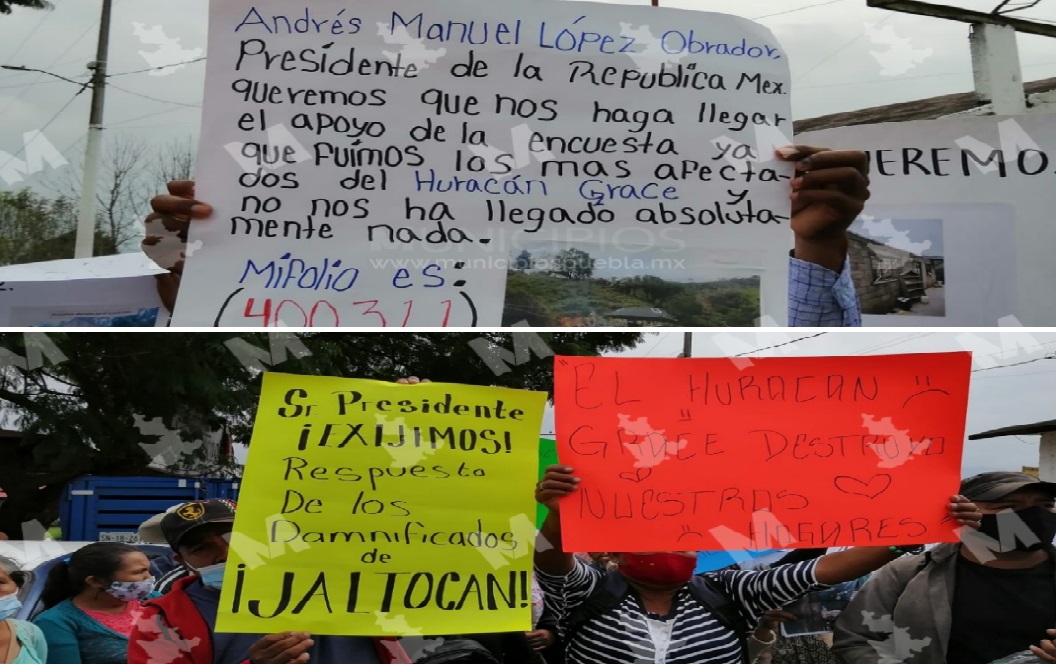 Andrés Manuel López Obrador,
Presidente de la Republica Mex.
queremos que nos haga llegar
el apoyo de la encuesta ya
que fuimos los mas afecta-
dos del Huracán Grace y
no nos ha llegado absoluta-
mente nada.
Mifolio es:
(400311)
UEREMO
MUNICIPIOS
www.municipiospuebla.mx
Sr Presidente
¡EXIJIMOS!
Respuesta
De los
Damnificados
de
¡JALTOCAN!
"EL HURACAN
GRACE DESTROYO
NUESTRAS
HOGARES"